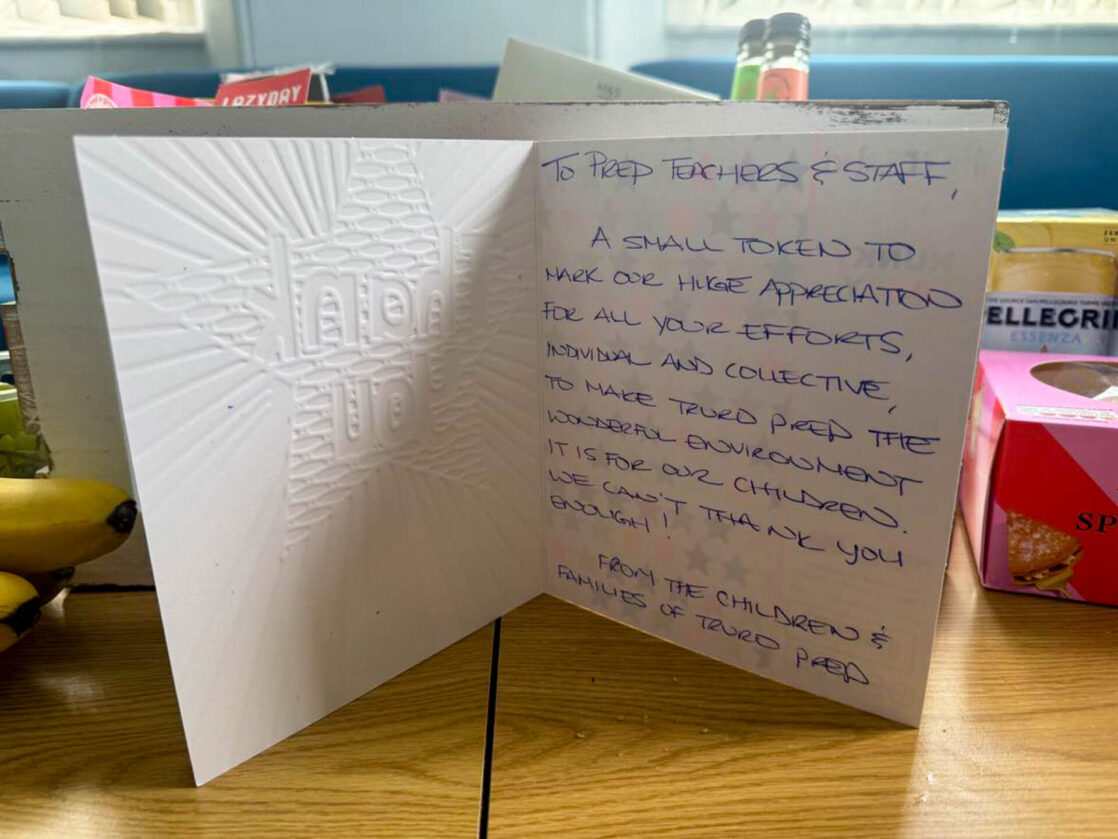 LAZYDAY
TO PREP TEACHERS & STAFF,
A SMALL TOKEN TO
MARK OUR HUGE APPRECIATION
FOR ALL YOUR EFFORTS,
INDIVIDUAL AND COLLECTIVE,
TO MAKE TRURO PREP THE
WONDERFUL ENVIRONMENT
IT IS FOR OUR CHILDREN.
WE CAN'T THANK YOU
ENOUGH!
FROM THE CHILDREN &
FAMILIES OF TRURO PREP
ELLEGRI
ESSENZA
SP